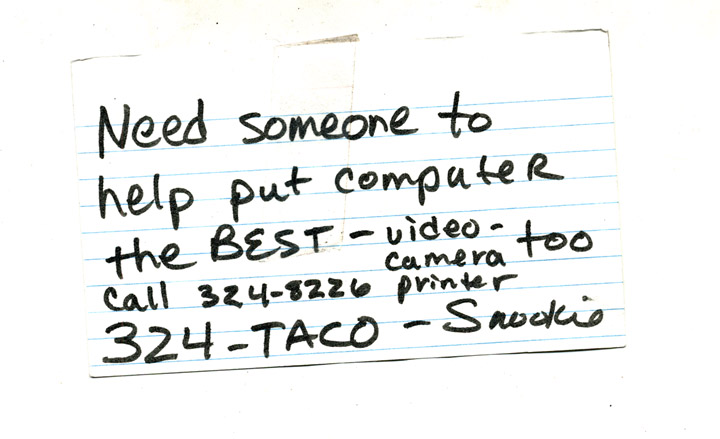 Need someone to
help put computeR
the BEST - video -
camera too
Call 324-8226 printer
324-TACO - Snookie